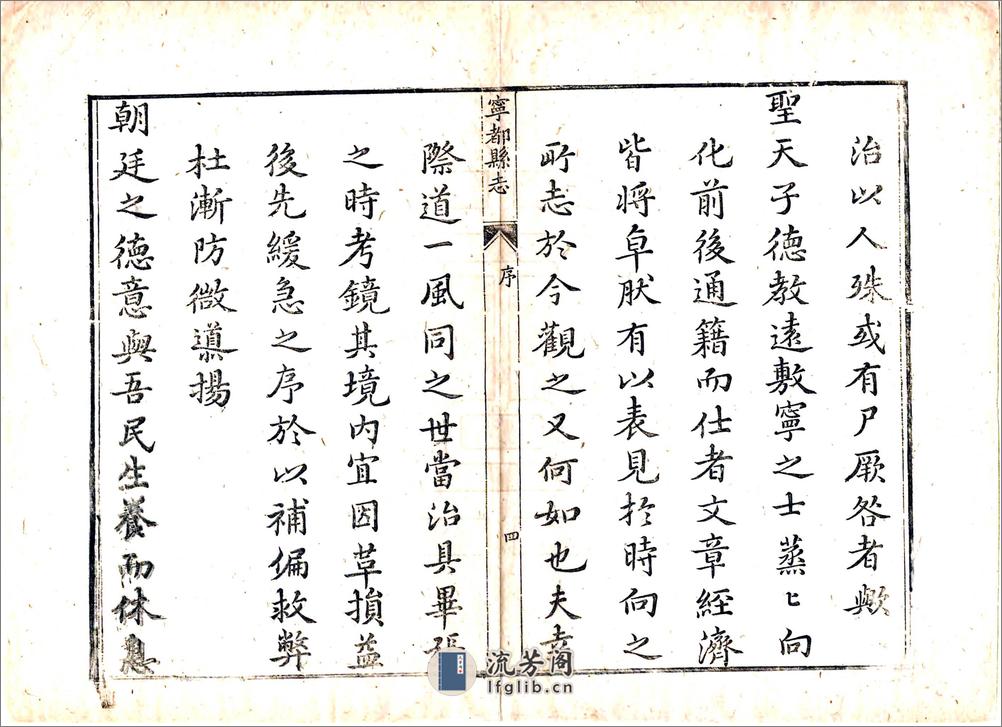 治以人殊或有尸厥咎者歟
聖天子德教遠敷寧之士蒸〻向
化前後通籍而仕者文章經濟
皆將卓肰有以表見扵時向之
所志於今觀之又何如也夫幸
寧都縣志
序
四
際道一風同之世當治具畢張
之時考鏡其境内宜因革損益
後先緩急之序於以補偏救弊
杜漸防微導揚
朝廷之德意與吾民生養而休息
流芳阁
lfglib.cn